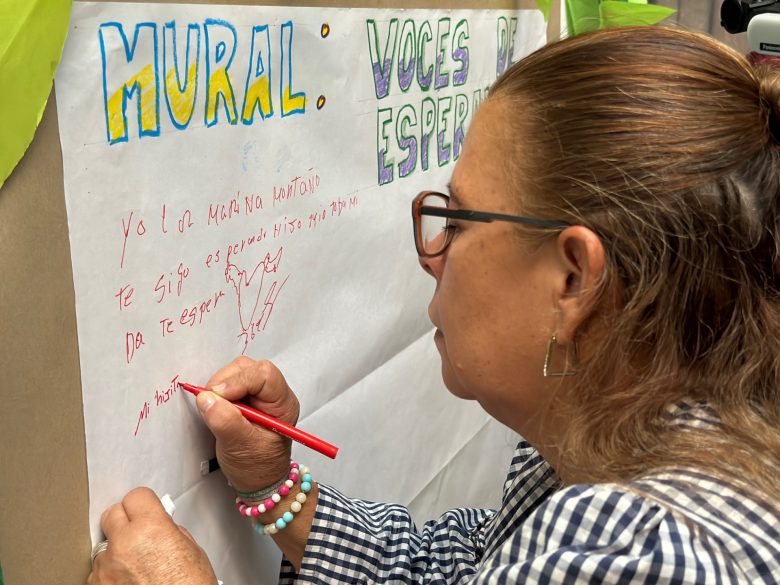 MURAL: VOCES DE
ESPERA
Yo Luz MARINA MONTAÑO
te sigo esperando Hijo mio toda mi
Da te esper
Mi hijito